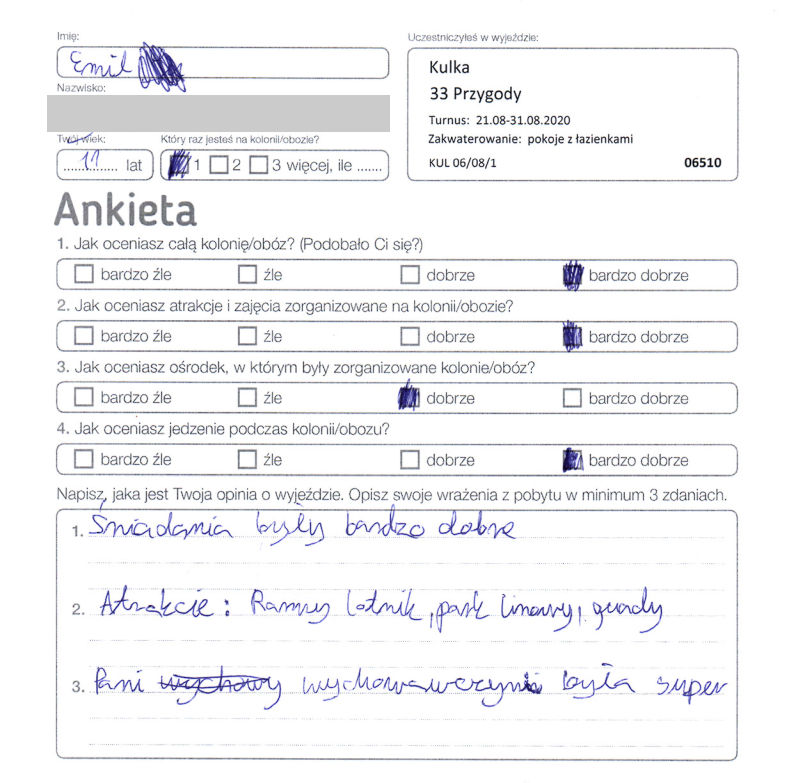 Imię:
Emil
Uczestniczyłeś w wyjeździe:
Kulka
33 Przygody
Turnus: 21.08-31.08.2020
Zakwaterowanie: pokoje z łazienkami
KUL 06/08/1 06510
Nazwisko:
Twój wiek: Który raz jesteś na kolonii/obozie?
11 lat 1 2 3 więcej, ile .......
Ankieta
1. Jak oceniasz całą kolonię/obóz? (Podobało Ci się?)
bardzo źle źle dobrze bardzo dobrze
2. Jak oceniasz atrakcje i zajęcia zorganizowane na kolonii/obozie?
bardzo źle źle dobrze bardzo dobrze
3. Jak oceniasz ośrodek, w którym były zorganizowane kolonie/obóz?
bardzo źle źle dobrze bardzo dobrze
4. Jak oceniasz jedzenie podczas kolonii/obozu?
bardzo źle źle dobrze bardzo dobrze
Napisz, jaka jest Twoja opinia o wyjeździe. Opisz swoje wrażenia z pobytu w minimum 3 zdaniach.
1. Śniadania były bardzo dobre
2. Atrakcie: lotnik, park linowy, quady
3. Pani wychowawczyni była super